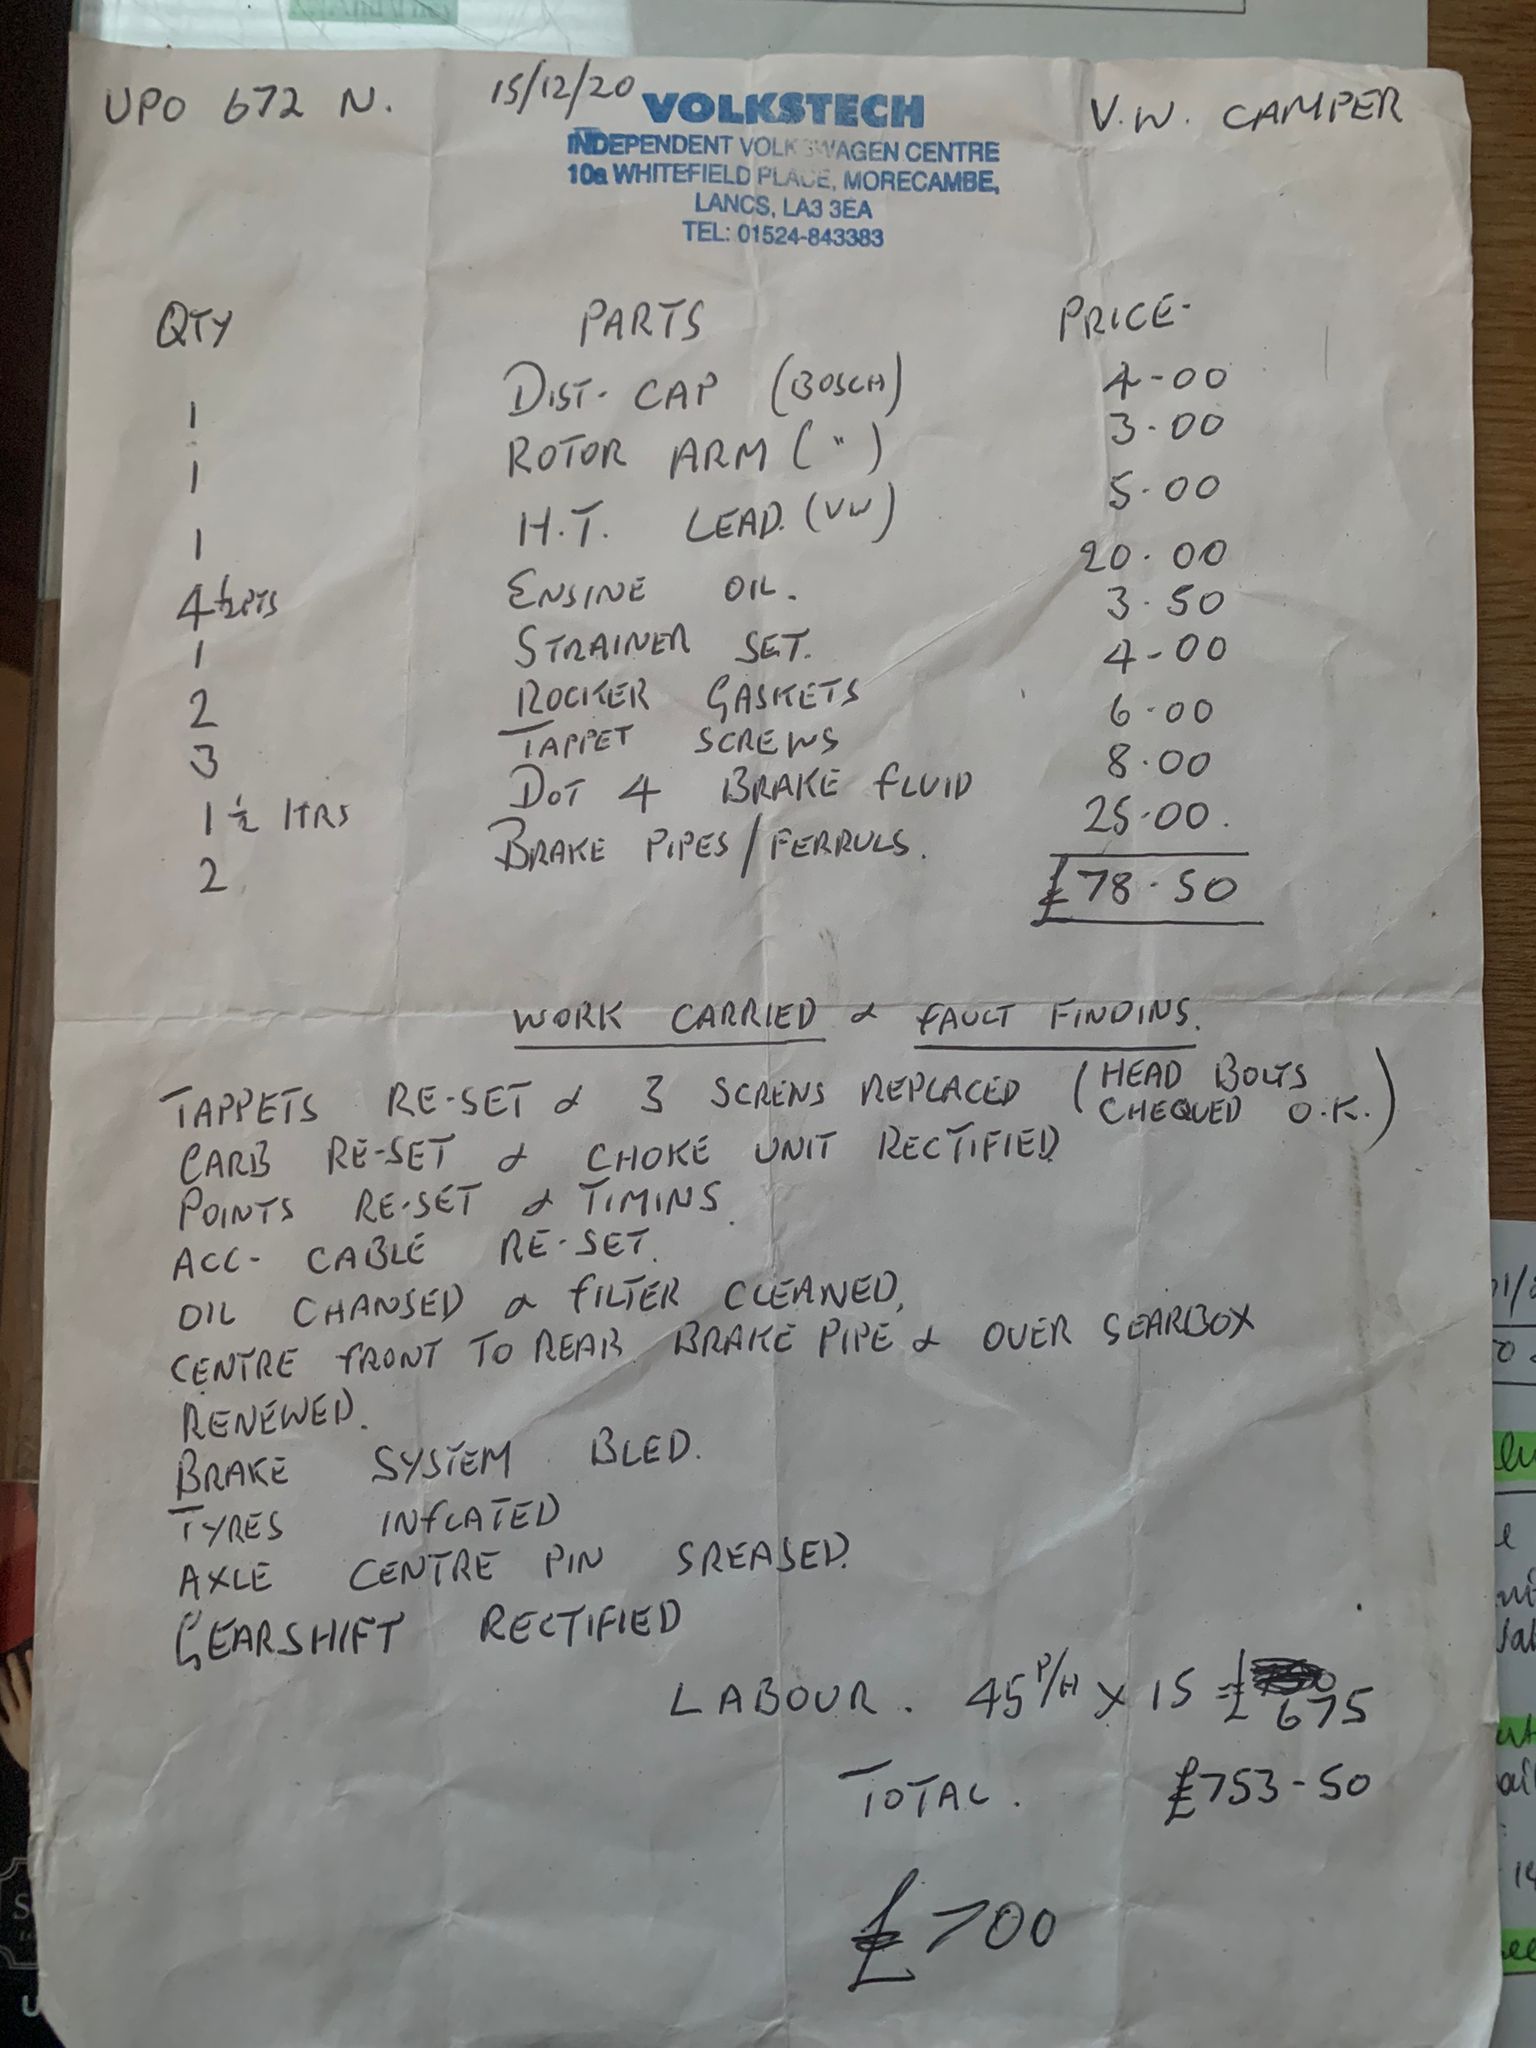 UPO 672 N. 15/12/20 V.W. CAMPER
VOLKSTECH
INDEPENDENT VOLKSWAGEN CENTRE
10a WHITEFIELD PLACE, MORECAMBE,
LANCS, LA3 3EA
TEL: 01524-843383
QTY PARTS PRICE-
1 DIST- CAP (BOSCH) 4-00
1 ROTOR ARM ( " ) 3.00
1 H.T. LEAD. (VW) 5.00
4 1/2 PTS ENSINE OIL. 20.00
1 STRAINER SET. 3.50
2 ROCKER GASKETS 4-00
3 TAPPET SCREWS 6.00
1 1/2 lTRS DOT 4 BRAKE FLUID 8.00
2 BRAKE PIPES/FERRULS. 25.00.
£78.50
WORK CARRIED & FAULT FINDINS.
TAPPETS RE-SET & 3 SCRENS REPLACED (HEAD BOLTS
CHEQUED O.K.)
CARB RE-SET & CHOKE UNIT RECTIFIED
POINTS RE-SET & TIMINS.
ACC- CABLE RE-SET.
OIL CHANSED & FILTER CLEANED,
CENTRE FRONT TO REAR BRAKE PIPE & OVER SEARBOX
RENEWED.
BRAKE SYSTEM BLED.
TYRES INFLATED
AXLE CENTRE PIN SREASED.
GEARSHIFT RECTIFIED
LABOUR. 45 P/H x 15 = £ 675
TOTAL. £753-50
£700